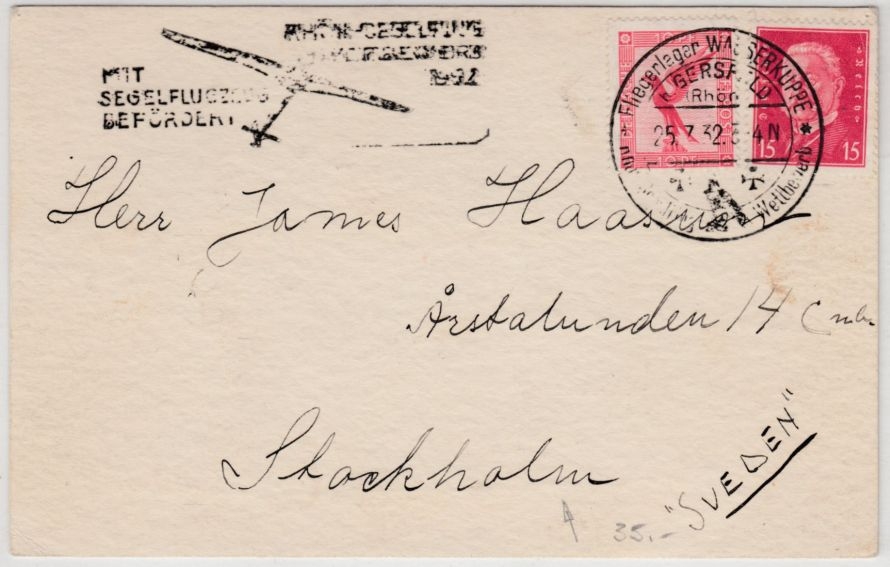 RHÖN-SEGELFLUG
WETTBEWERB
1932
MIT
SEGELFLUGZEUG
BEFÖRDERT
Fliegerlager WASSERKUPPE
GERSFELD
(Rhön)
25.7.32.3-4N
Wettbewerb
10 PF
15 15
Herr James
Årstalunden 14
Stockholm
"SVEDEN"
35.-